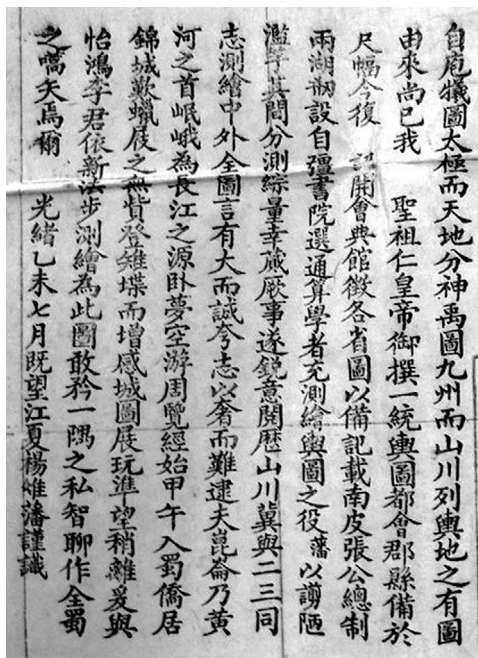 自庖犧圖太極而天地分神禹圖九州而山川列輿地之有圖
由來尚已我 聖祖仁皇帝御撰一統輿圖都會郡縣備於
尺幅今復 詔開會典館徵各省圖以備記載南皮張公總制
兩湖剏設自彊書院選通算學者充測繪輿圖之役藩以謭陋
濫竽其間分測綜量幸蕆厥事遂銳意閱歷山川冀與二三同
志測繪中外全圖言有大而誠夸志以奢而難逮夫崑崙乃黃
河之首岷峨為長江之源卧夢空游周覽經始甲午入蜀僑居
錦城歎蠟屐之無貲登雉堞而增感城圖展玩準望稍離爰與
怡鴻李君依新法步測繪為此圖敢矜一隅之私智聊作全蜀
之嚆矢焉爾 光緒乙未七月既望江夏楊維藩謹識